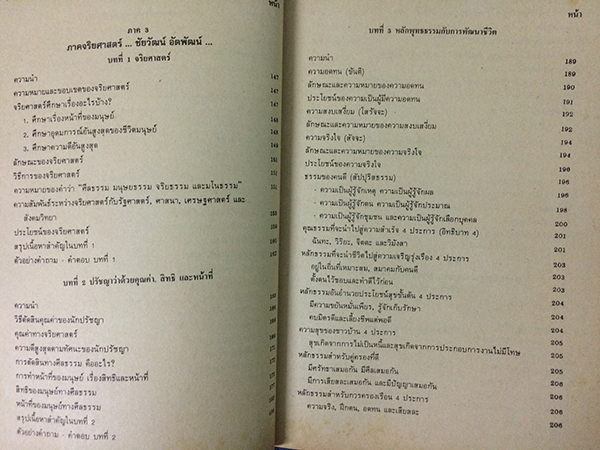 หน้า
ภาค 3
ภาคจริยศาสตร์ ... ชัยวัฒน์ อัตพัฒน์ ...
บทที่ 1 จริยศาสตร์
ความนำ 147
ความหมายและขอบเขตของจริยศาสตร์ 147
จริยศาสตร์ศึกษาเรื่องอะไรบ้าง?
1. ศึกษาเรื่องหน้าที่ของมนุษย์
2. ศึกษาอุดมการณ์อันสูงสุดของชีวิตมนุษย์
3. ศึกษาความดีอันสูงสุด
ลักษณะของจริยศาสตร์
วิธีการของจริยศาสตร์
ความหมายของคำว่า "ศีลธรรม มนุษยธรรม จริยธรรม และมโนธรรม"
ความสัมพันธ์ระหว่างจริยศาสตร์กับรัฐศาสตร์, ศาสนา, เศรษฐศาสตร์ และ
สังคมวิทยา
ประโยชน์ของจริยศาสตร์
สรุปเนื้อหาสำคัญในบทที่ 1
ตัวอย่างคำถาม - คำตอบ บทที่ 1
บทที่ 2 ปรัชญาว่าด้วยคุณค่า, สิทธิ และหน้าที่
ความนำ
วิธีตัดสินคุณค่าของนักปรัชญา
คุณค่าทางจริยศาสตร์
ความดีสูงสุดตามทัศนะของนักปรัชญา
การตัดสินทางศีลธรรม คืออะไร?
การทำหน้าที่ของมนุษย์ เรื่องสิทธิและหน้าที่
สิทธิของมนุษย์ทางศีลธรรม
หน้าที่ของมนุษย์ทางศีลธรรม
สรุปเนื้อหาสำคัญในบทที่ 2
ตัวอย่างคำถาม - คำตอบ บทที่ 2
หน้า
บทที่ 3 หลักพุทธธรรมกับการพัฒนาชีวิต
ความนำ 189
ความอดทน (ขันติ) 189
ลักษณะและความหมายของความอดทน 190
ประโยชน์ของความเป็นผู้มีความอดทน 191
ความสงบเสงี่ยม (โสรัจจะ) 192
ลักษณะและความหมายของความสงบเสงี่ยม 192
ความจริงใจ (สัจจะ) 194
ลักษณะและความหมายของความจริงใจ 194
ประโยชน์ของความจริงใจ 196
ธรรมของคนดี (สัปปุริสธรรม) 196
- ความเป็นผู้รู้จักเหตุ ความเป็นผู้รู้จักผล 196
- ความเป็นผู้รู้จักตน ความเป็นผู้รู้จักประมาณ
- ความเป็นผู้รู้จักชุมชน และความเป็นผู้รู้จักเลือกบุคคล 198
คุณธรรมที่จะนำไปสู่ความสำเร็จ 4 ประการ (อิทธิบาท 4) 200
ฉันทะ, วิริยะ, จิตตะ และวิมังสา 201
หลักธรรมที่จะนำชีวิตไปสู่ความเจริญรุ่งเรือง 4 ประการ 203
อยู่ในถิ่นที่เหมาะสม, สมาคมกับคนดี 203
ตั้งตนไว้ชอบและทำดีไว้ก่อน 203
หลักธรรมอันอำนวยประโยชน์สุขขั้นต้น 4 ประการ 204
มีความขยันหมั่นเพียร, รู้จักเก็บรักษา 204
คบมิตรดีและเลี้ยงชีพแต่พอดี 204
ความสุขของชาวบ้าน 4 ประการ
สุขเกิดจากการไม่เป็นหนี้และสุขเกิดจากการประกอบการงานไม่มีโทษ 205
หลักธรรมสำหรับคู่ครองที่ดี 205
มีศรัทธาเสมอกัน มีศีลเสมอกัน 205
มีการเสียสละเสมอกัน และมีปัญญาเสมอกัน 206
หลักธรรมสำหรับการครองเรือน 4 ประการ 206
ความจริง, ฝึกตน, อดทน และเสียสละ 206